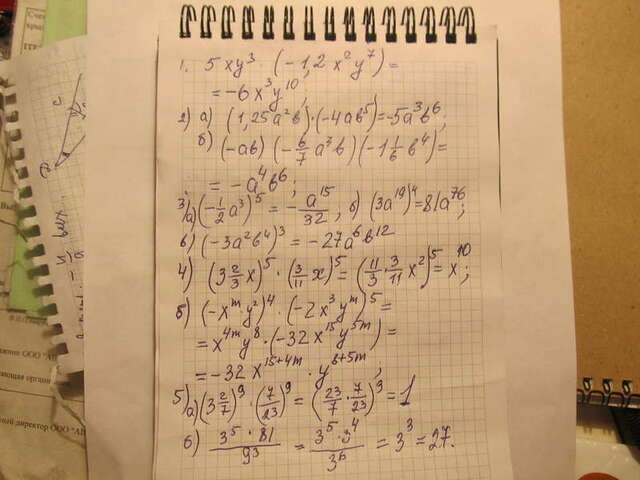 1. 5xy³ · (-1,2x²y⁷) =
= -6x³y¹⁰;
2) а) (1,25a²b)·(-4ab⁵)=-5a³b⁶;
б) (-ab)(-6/7 a³b)(-1 1/6 b⁴)=
= -a⁴b⁶;
3) а) (-1/2 a³)⁵ = -a¹⁵/32, б) (3a¹⁹)⁴=81a⁷⁶;
в) (-3a²b⁴)³ = -27a⁶b¹²
4) (3 2/3 x)⁵ · (3/11 x)⁵ = (11/3 · 3/11 x²)⁵ = x¹⁰;
б) (-xᵐy²)⁴ · (-2x³yᵐ)⁵ =
= x⁴ᵐy⁸ · (-32x¹⁵y⁵ᵐ) =
= -32x¹⁵⁺⁴ᵐ · y⁸⁺⁵ᵐ;
5) а) (3 2/7)⁹ · (7/23)⁹ = (23/7 · 7/23)⁹ = 1
б) 3⁵ · 81 / 9³ = 3⁵ · 3⁴ / 3⁶ = 3³ = 27.